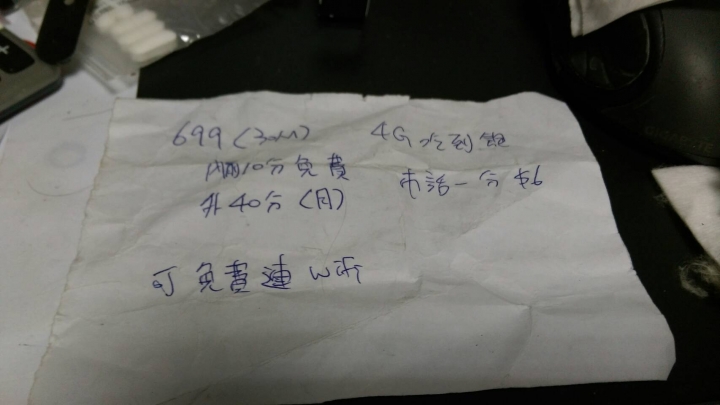 699(30M) 4G吃到飽
內網10分免費 市話一分$6
外40分(月)
可免費連wifi